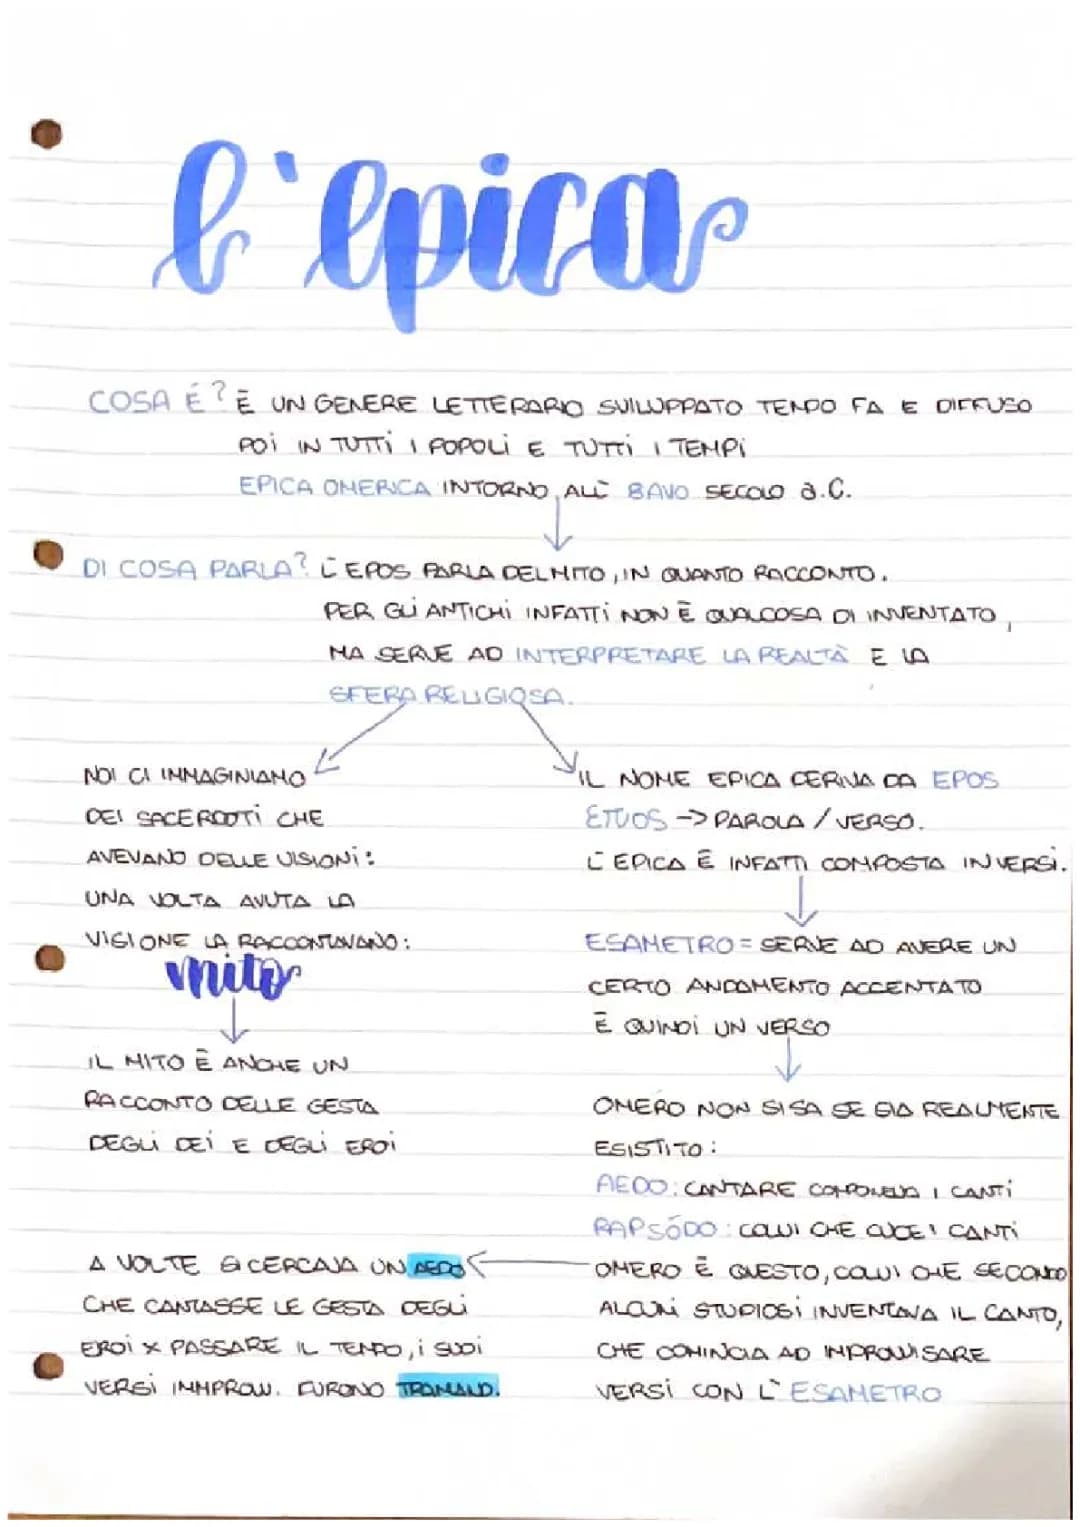 l'epica
COSA È? È UN GENERE LETTERARIO SVILUPPATO TEMPO FA E DIFFUSO
POI IN TUTTI I POPOLI E TUTTI I TEMPI
EPICA OMERICA INTORNO ALL' 8AVO SECOLO a.C.
DI COSA PARLA? L'EPOS PARLA DEL MITO, IN QUANTO RACCONTO.
PER GLI ANTICHI INFATTI NON È QUALCOSA DI INVENTATO,
MA SERVE AD INTERPRETARE LA REALTÀ E LA
SFERA RELIGIOSA.
NOI CI IMMAGINIAMO
DEI SACERDOTI CHE
AVEVANO DELLE VISIONI:
UNA VOLTA AVUTA LA
VISIONE LA RACCONTAVANO:
mito
IL MITO È ANCHE UN
RACCONTO DELLE GESTA
DEGLI DEI E DEGLI EROI
A VOLTE SI CERCAVA UN AEDO
CHE CANTASSE LE GESTA DEGLI
EROI x PASSARE IL TEMPO, i SUOI
VERSI IMMPROVV. FURONO TRAMAND.
IL NOME EPICA DERIVA DA EPOS
ETUOS -> PAROLA / VERSO.
L'EPICA È INFATTI COMPOSTA IN VERSI.
ESAMETRO = SERVE AD AVERE UN
CERTO ANDAMENTO ACCENTATO
È QUINDI UN VERSO
OMERO NON SI SA SE SIA REALMENTE
ESISTITO:
AEDO: CANTARE COMPONEVA I CANTI
RAPSÓDO: COLUI CHE CUCE I CANTI
OMERO È QUESTO, COLUI CHE SECONDO
ALCUNI STUDIOSI INVENTAVA IL CANTO,
CHE COMINCIA AD IMPROVVISARE
VERSI CON L'ESAMETRO